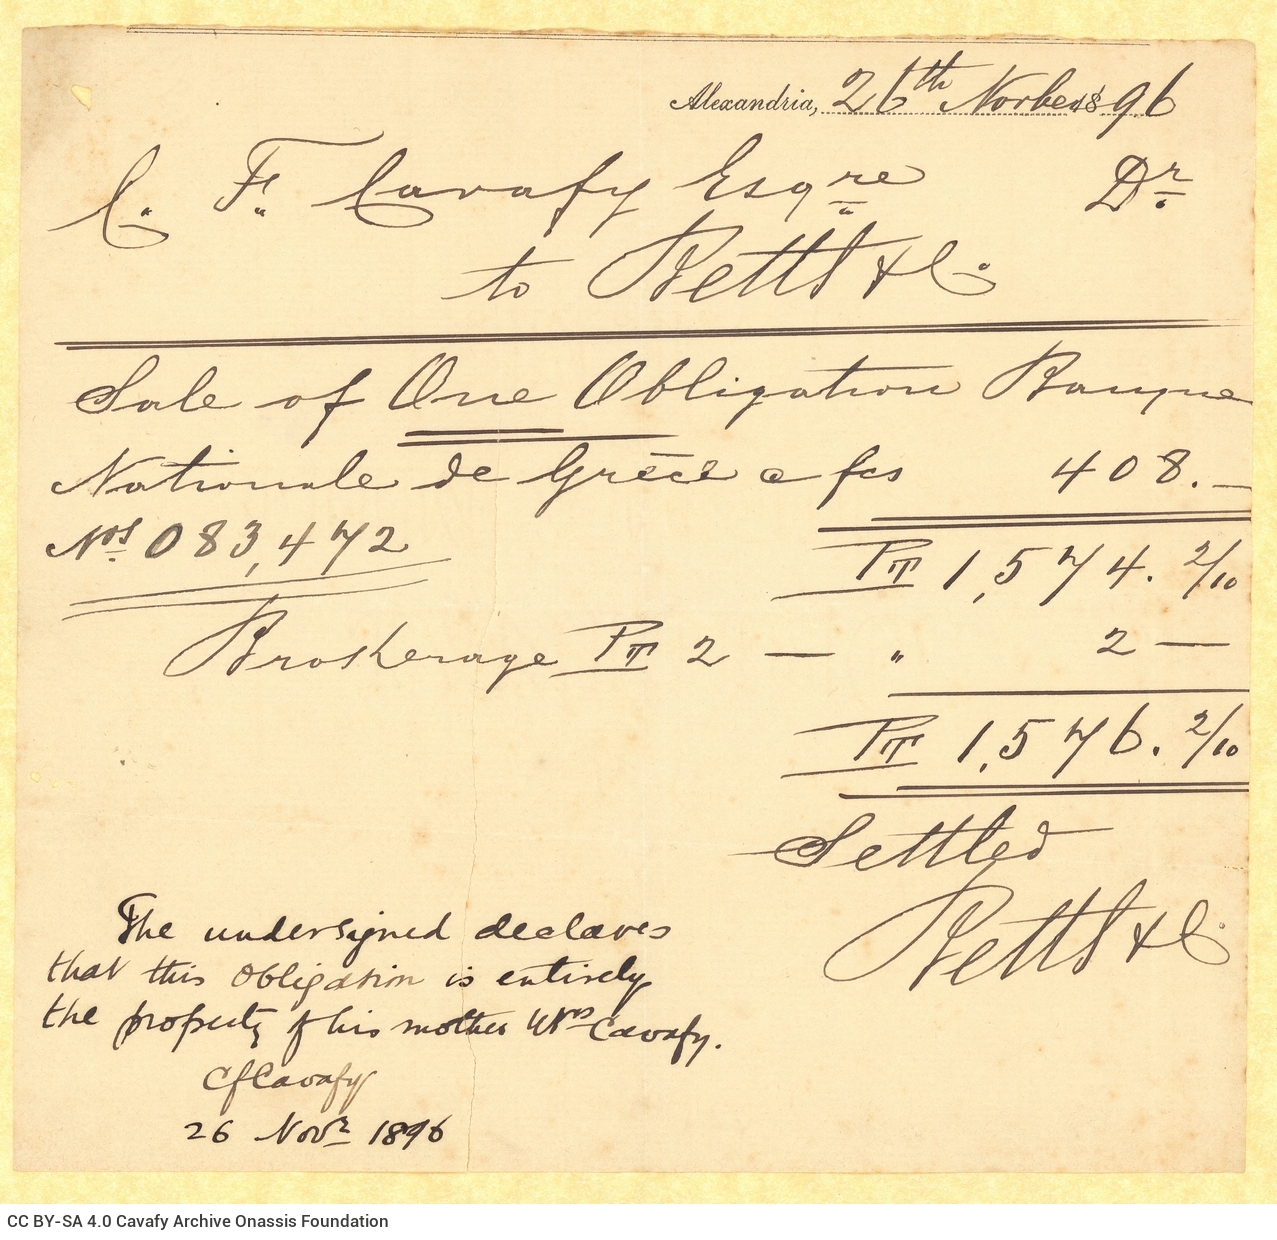 Alexandria, 26th Novber 1896
C. F. Cavafy Esqre Dr
to Bettl & C.
Sale of One Obligation Banque
Nationale de Grèce a fcs 408.—
Nos 083,472 PT 1,574. 2/10
Brokerage PT 2 — " 2 —
PT 1,576. 2/10
Settled
Bettl & C.
The undersigned declares
that this obligation is entirely
the property of his mother Mrs Cavafy.
CFCavafy
26 Novr 1896
CC BY-SA 4.0 Cavafy Archive Onassis Foundation